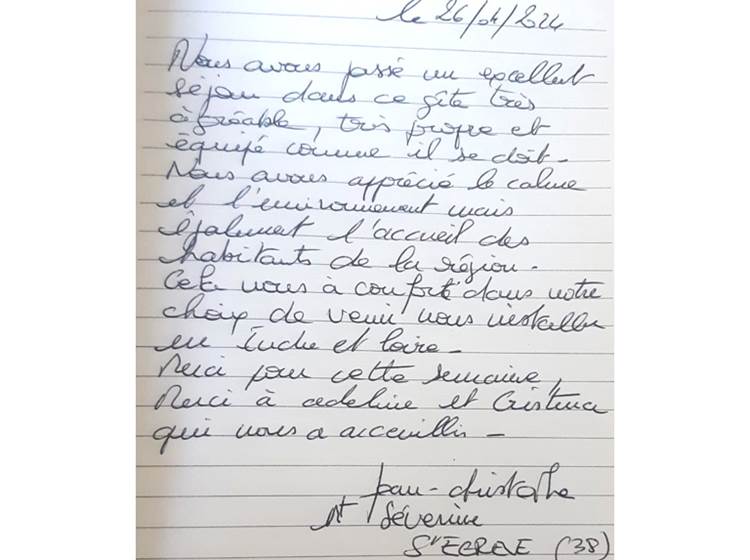 le 26/04/2024
Nous avons passé un excellent
séjour dans ce gîte très
agréable, très propre et
équipé comme il se doit.
Nous avons apprécié le calme
et l'environnement mais
également l'accueil des
habitants de la région.
Cela nous à conforté dans notre
choix de venir nous installer
en Indre et Loire.
Merci pour cette semaine,
Merci à Adeline et Cristina
qui nous a acceuillis -
Jean-Christophe
et Séverine
St EGREVE (38)